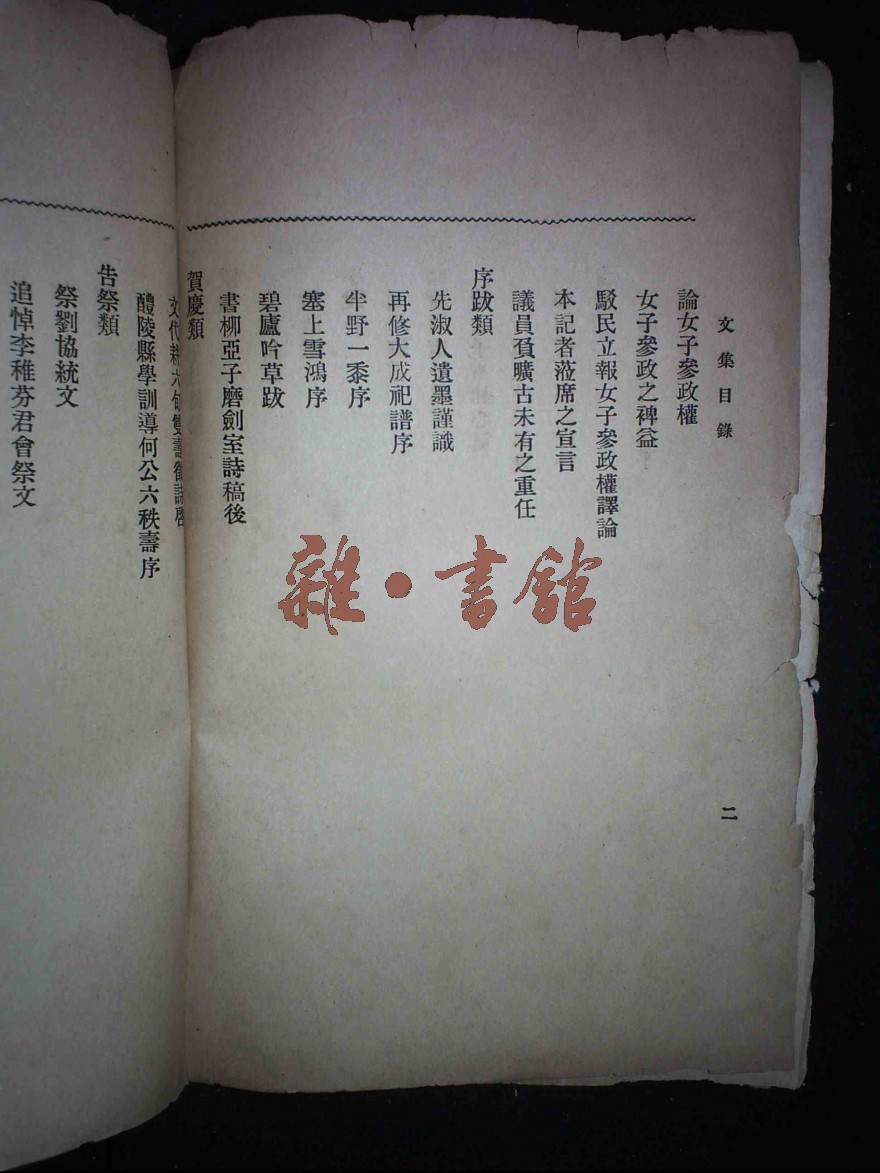 文集目錄
二
論女子參政權
女子參政之裨益
駁民立報女子參政權譯論
本記者蒞席之宣言
議員負曠古未有之重任
序跋類
先淑人遺墨謹識
再修大成祀譜序
半野一黍序
塞上雪鴻序
碧廬吟草跋
書柳亞子磨劍室詩稿後
賀慶類
文代耕六旬雙壽徵詩啓
醴陵縣學訓導何公六秩壽序
告祭類
祭劉協統文
追悼李稚芬君會祭文
雜·書館